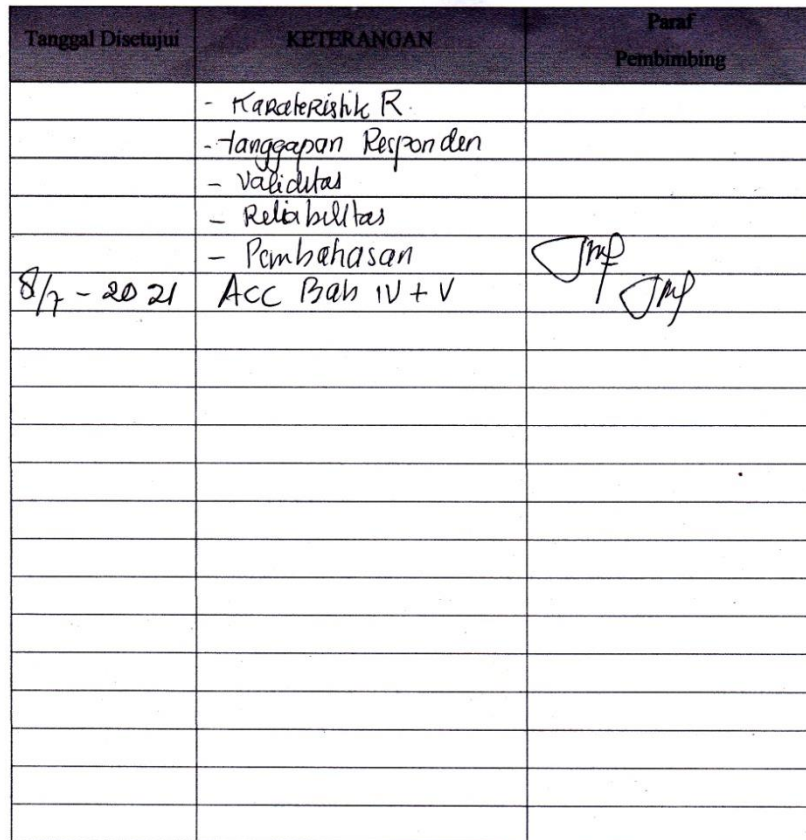 Tanggal Disetujui KETERANGAN Paraf Pembimbing
- Karateristik R.
- tanggapan Responden
- Validitas
- Reliabilitas
- Pembahasan
8/7 - 2021 Acc Bab IV + V